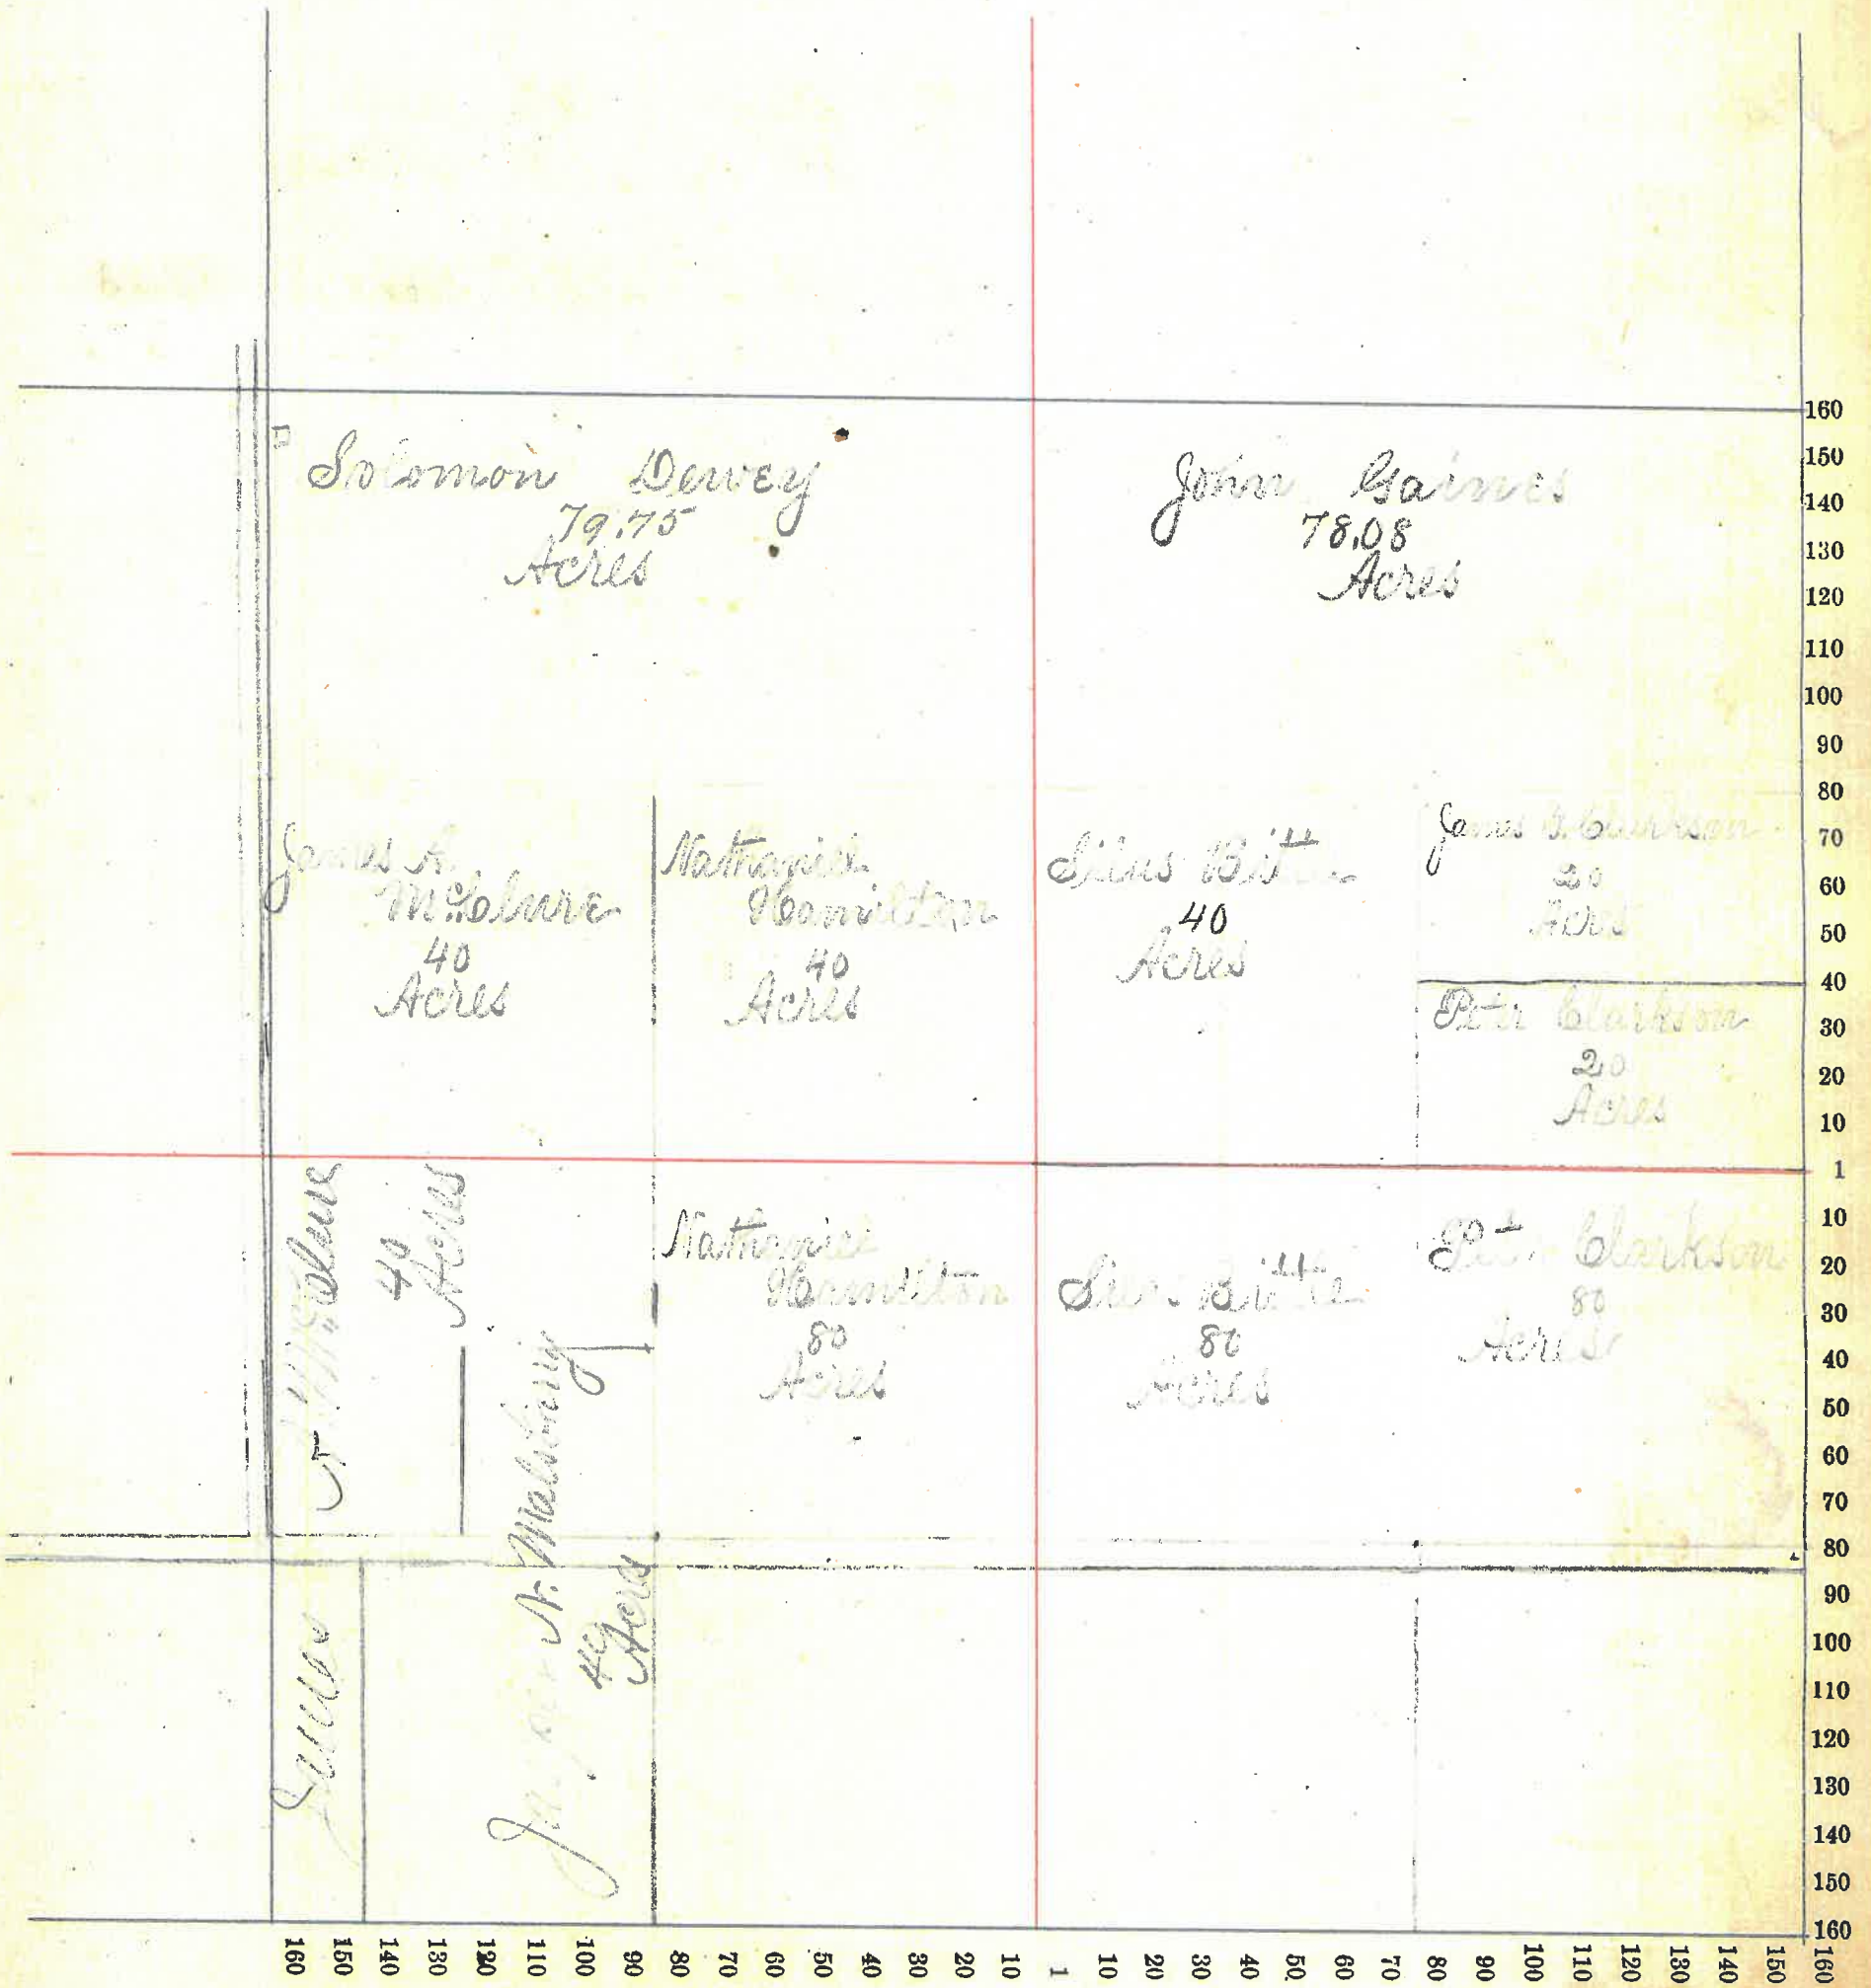 Solomon Dewey
79.75
Acres
John Gaines
78.08
Acres
James A.
McClure
40
Acres
Nathaniel
Hamilton
40
Acres
40
Acres
Clarkson
20
Acres
Peter Clarkson
20
Acres
James A. McClure
40
Acres
A. Malsbury
40
Acres
Nathaniel
Hamilton
80
Acres
80
Acres
Peter Clarkson
80
Acres
160
150
140
130
120
110
100
90
80
70
60
50
40
30
20
10
1
10
20
30
40
50
60
70
80
90
100
110
120
130
140
150
160
160 150 140 130 120 110 100 90 80 70 60 50 40 30 20 10 1 10 20 30 40 50 60 70 80 90 100 110 120 130 140 150 160